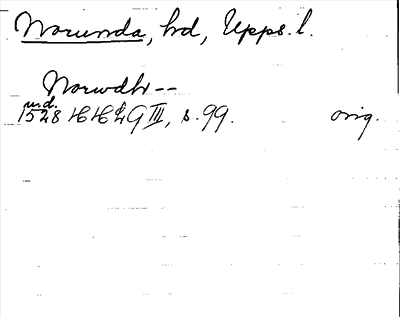 Norunda, hd, Upps. l.
Norwdh --
u.d.
1528 HH 29 III, s. 99. orig.